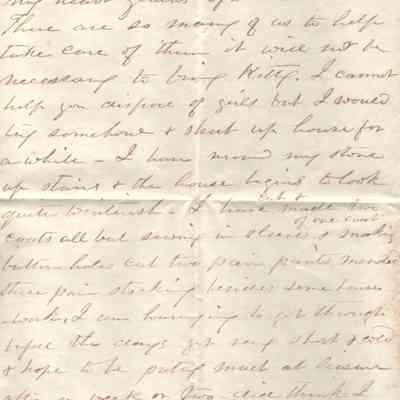 my
There are so many of us to help
take care of them it will not be
necessary to bring Kitty. I cannot
help you dispose of girls but I would
try somehow & shut up house for
a while - I have moved my stove
up stairs & the house begins to look
quite Winterish. I have cut & made two
of one coat
coats all but sewing in sleeves & making
button holes cut two pair pants mended
three pair stocking besides some house
work. I am hurrying to get through
before the days get very short & cold
& hope to be pretty much at leisure
after a week or two